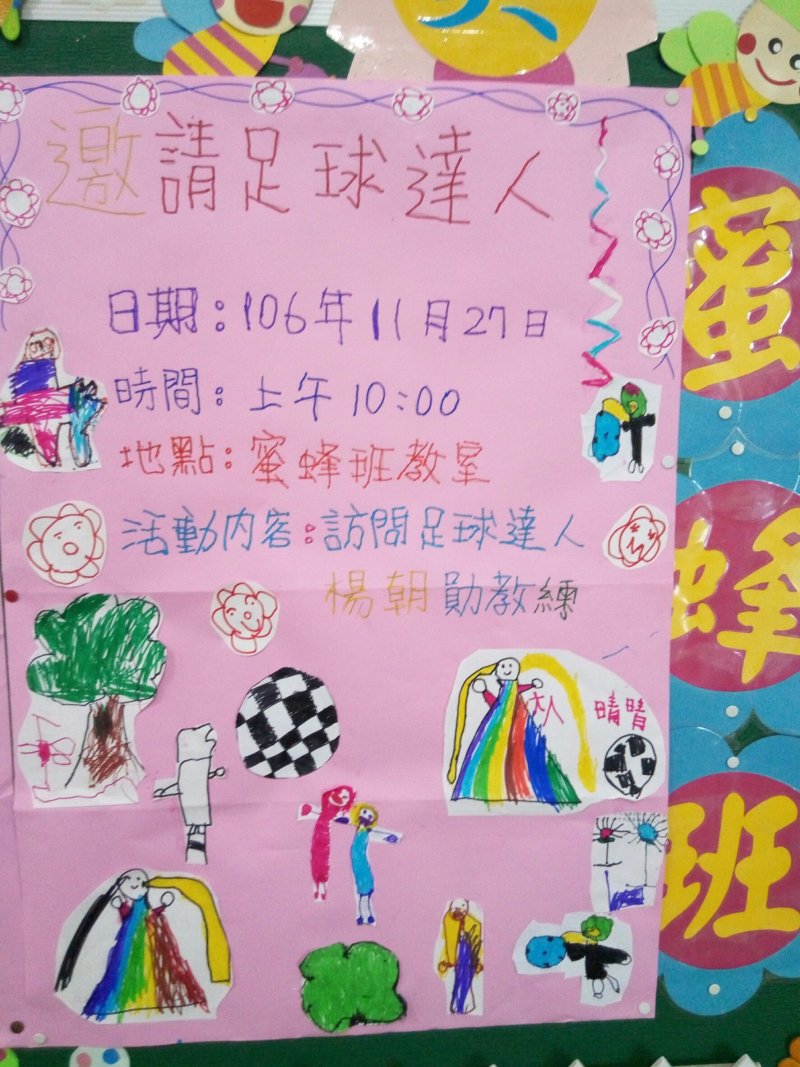 邀請足球達人
日期:106年11月27日
時間:上午10:00
地點:蜜蜂班教室
活動內容:訪問足球達人
楊朝勛教練
晴晴
蜜
蜂
班